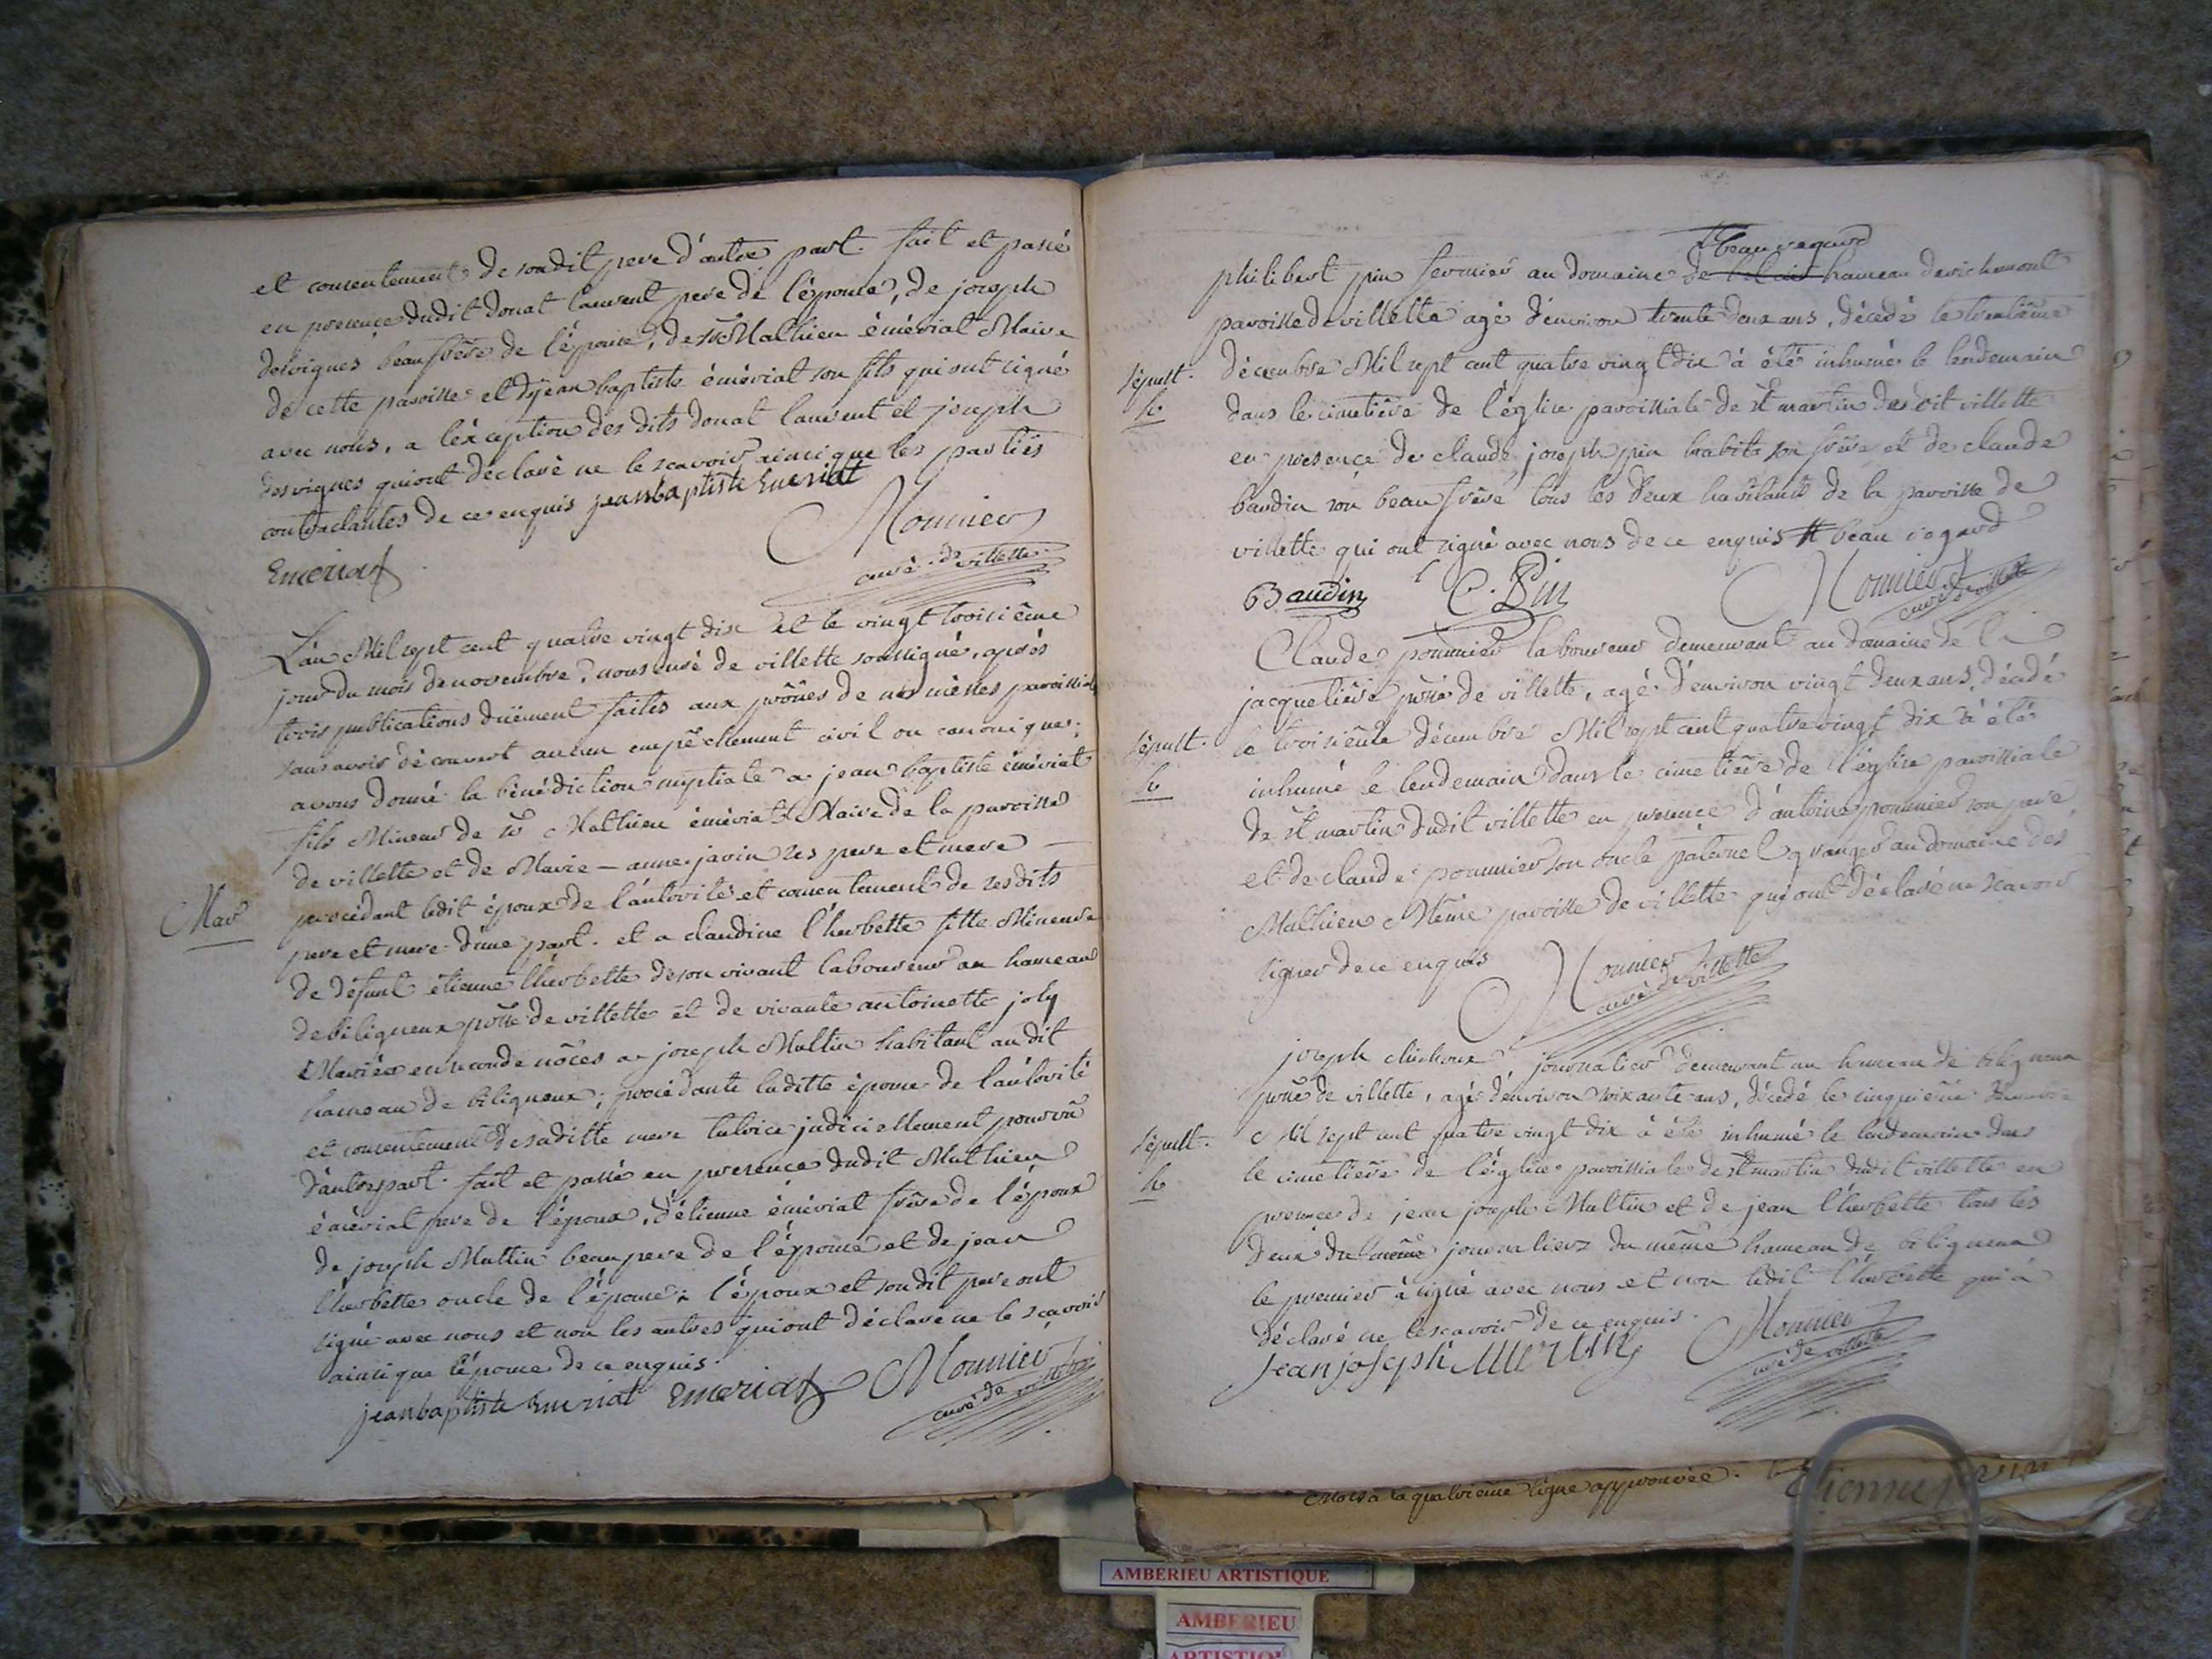 et consentement de sondit pere d'autre part. fait et passé
en presence dudit donat laurent pere de l'épouse, de joseph
desvignes beaufrêre de l'épouse, de sr Mathieu émériat Maire
de cette paroisse et de jean baptiste émériat son fils qui ont signé
avec nous, a l'éxception des dits donat laurent et joseph
desvignes qui ont déclaré ne le scavoir ainsi que les parties
contractantes de ce enquis jeanbaptiste Emeriat
Emeriat
Monnier
curé de villette
L'an Mil sept cent quatre vingt dix et le vingt troisiême
jour du mois de novembre, nous curé de villette soussigné, après
trois publications düement faites aux prônes de nos messes paroissiales
sans avoir découvert aucun empêchement civil ou canonique,
avons donné la bénédiction nuptiale a jean baptiste émériat
fils Mineur de sr Mathieu émériat Maire de la paroisse
de villette et de Marie - anne javin ses pere et mere —
Mar
procédant ledit époux de l'autorité et consentement de ses dits
pere et mere d'une part. et a claudine l'herbette fille Mineure
de défunt étienne l'herbette de son vivant laboureur au hameau
de biligneux psse de villette et de vivante antoinette joly
Mariée en seconde nôces a joseph Multin habitant au dit
hameau de biligneux; procédante laditte épouse de l'autorité
et consentement de saditte mere tutrice judiciellement pourvüe
d'autre part. fait et passé en presence dudit Mathieu
émériat pere de l'époux, d'étienne émériat frêre de l'époux
de joseph Multin beaupere de l'épouse et de jean
l'herbette oncle de l'épouse; l'époux et sondit pere ont
signé avec nous et non les autres qui ont déclaré ne le scavoir
ainsi que l'épouse de ce enquis.
jeanbaptiste Emeriat Emeriat Monnier
curé de villette
# beau regard
philibert pin fermier au domaine de hameau de richemont
paroisse de villette agé d'environ trente deux ans, décédé le trentiême
Sépult.
décembre Mil sept cent quatre vingt dix à été inhumé le lendemain
dans le cimetiêre de l'église paroissiale de st martin dudit villette
en presence de claude joseph pin son frêre et de claude
baudin son beaufrêre tous les deux habitants de la paroisse de
villette qui ont signé avec nous de ce enquis # beau regard
Baudin C. Pin Monnier
curé de villette
Claude pommier laboureur demeurant au domaine de la
jacquetiêre psse de villette, agé d'environ vingt deux ans, décédé
Sépult.
le troisiême décembre Mil sept cent quatre vingt dix à été
inhumé le lendemain dans le cimetiêre de l'église paroissiale
de st martin dudit villette en presence d'antoine pommier son pere
et de claude pommier son oncle paternel granger au domaine des
Mathieu Même paroisse de villette qui ont déclaré ne scavoir
signer de ce enquis Monnier
curé de villette
joseph journalier demeurant au hameau de biligneux
psse de villette, agé d'environ soixante ans, décédé le cinquiême décembre
Sépult.
Mil sept cent quatre vingt dix à été inhumé le lendemain dans
le cimetiêre de l'église paroissiale de st martin dudit villette en
presence de jean joseph Multin et de jean l'herbette tous les
deux du même journaliers du même hameau de biligneux
le premier à signé avec nous et non ledit l'herbette qui à
déclaré ne le scavoir de ce enquis. Monnier
curé de villette
jean joseph
Mots a la quatrieme ligne approuvée. Etienne
AMBERIEU ARTISTIQUE
AMBERIEU
ARTISTIQUE